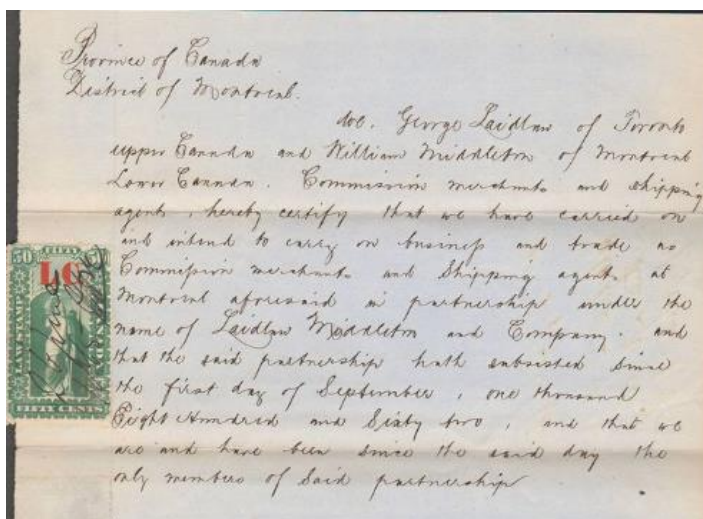 Province of Canada
District of Montreal.
We. George Laidlaw of Toronto
upper Canada and William Middleton of Montreal
Lower Canada. Commission merchants and shipping
agents, hereby certify that we have carried on
and intend to carry on business and trade as
Commission merchants and Shipping agents at
Montreal aforesaid in partnership under the
name of Laidlaw Middleton and Company. and
that the said partnership hath subsisted since
the first day of September, one thousand
Eight Hundred and Sixty two, and that we
are and have been since the said day the
only members of Said partnership
50 FIFTY
LC
LAW STAMP
FIFTY CENTS